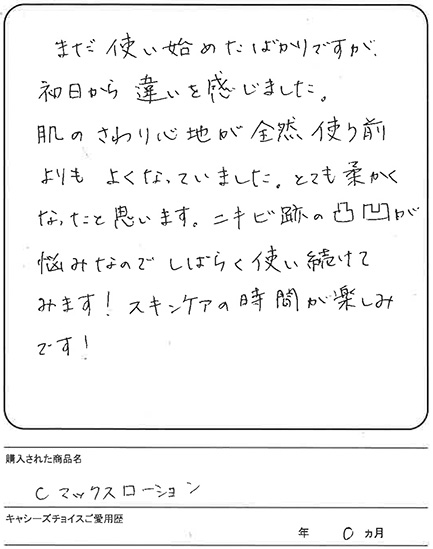 まだ使い始めたばかりですが、
初日から違いを感じました。
肌のさわり心地が全然、使う前
よりもよくなっていました。とても柔かく
なったと思います。ニキビ跡の凸凹が
悩みなのでしばらく使い続けて
みます！スキンケアの時間が楽しみ
です！
購入された商品名
Cマックスローション
キャシーズチョイスご愛用歴
年 0 ヵ月